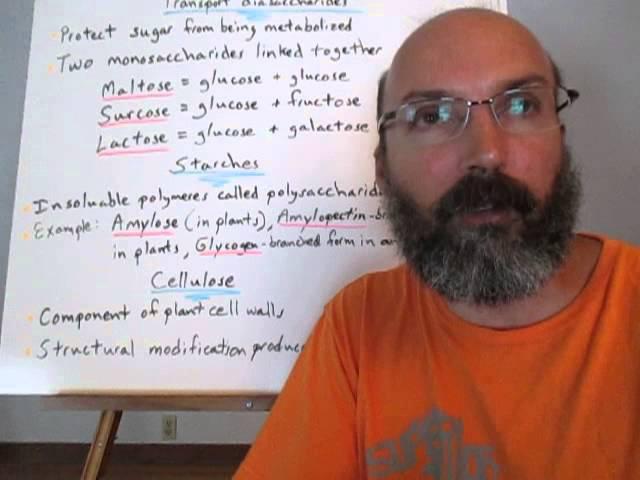 Transport disaccharides
Protect sugar from being metabolized
Two monosaccharides linked together
Maltose = glucose + glucose
Surcose = glucose + fructose
Lactose = glucose + galactose
Starches
Insoluable polymeres called polysaccharid
Example: Amylose (in plants), Amylopectin-br
in plants, Glycogen-branched form in an
Cellulose
Component of plant cell walls
Structural modification produc